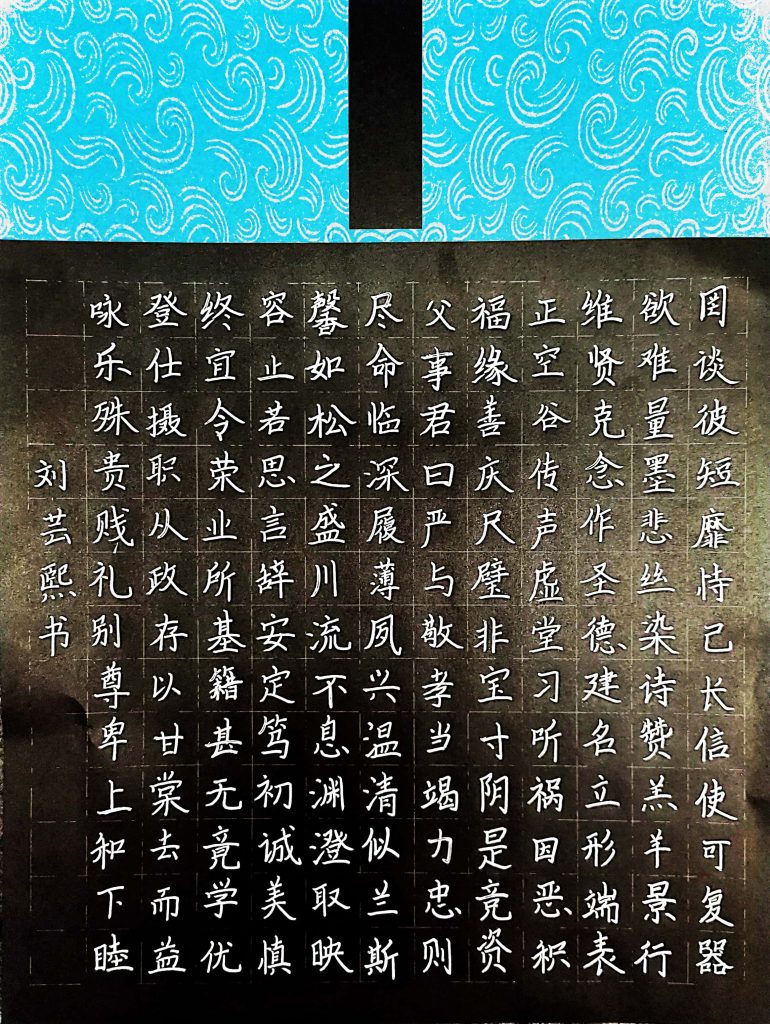 罔谈彼短靡恃己长信使可复器
欲难量墨悲丝染诗赞羔羊景行
维贤克念作圣德建名立形端表
正空谷传声虚堂习听祸因恶积
福缘善庆尺璧非宝寸阴是竞资
父事君曰严与敬孝当竭力忠则
尽命临深履薄夙兴温清似兰斯
馨如松之盛川流不息渊澄取映
容止若思言辞安定笃初诚美慎
终宜令荣业所基籍甚无竟学优
登仕摄职从政存以甘棠去而益
咏乐殊贵贱礼别尊卑上和下睦
刘芸熙书